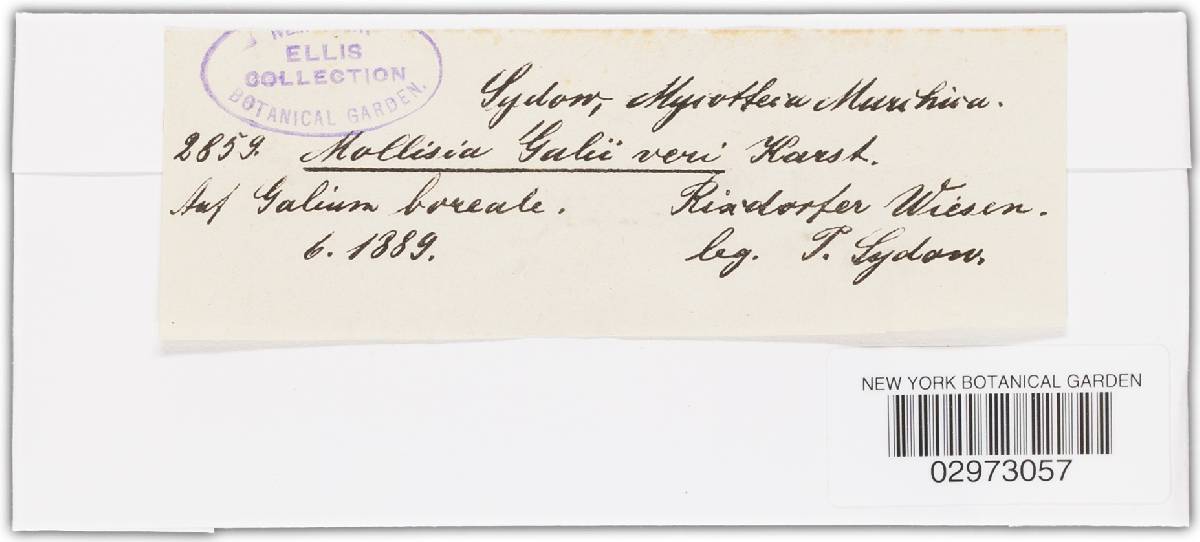 ELLIS
COLLECTION
BOTANICAL GARDEN.
Sydow, Mycotheca Marchica.
2859. Mollisia Galii veri Karst.
Auf Galium boreale. Rixdorfer Wiesen.
6. 1889. leg. P. Sydow.
NEW YORK BOTANICAL GARDEN
02973057